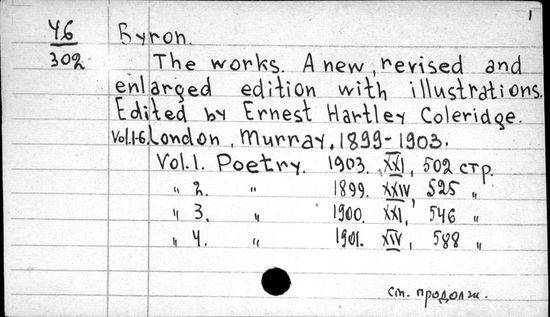 1
46 Byron.
302 The works. A new, revised and
enlarged edition with illustrations.
Edited by Ernest Hartley Coleridge.
Vol.1-6. London, Murray, 1899-1903.
Vol. 1. Poetry. 1903. XXI, 502 стр.
" 2. " 1899. XXIV, 525 "
" 3. " 1900. XXI, 546 "
" 4. " 1901. XIV, 588 "
См. продолж.